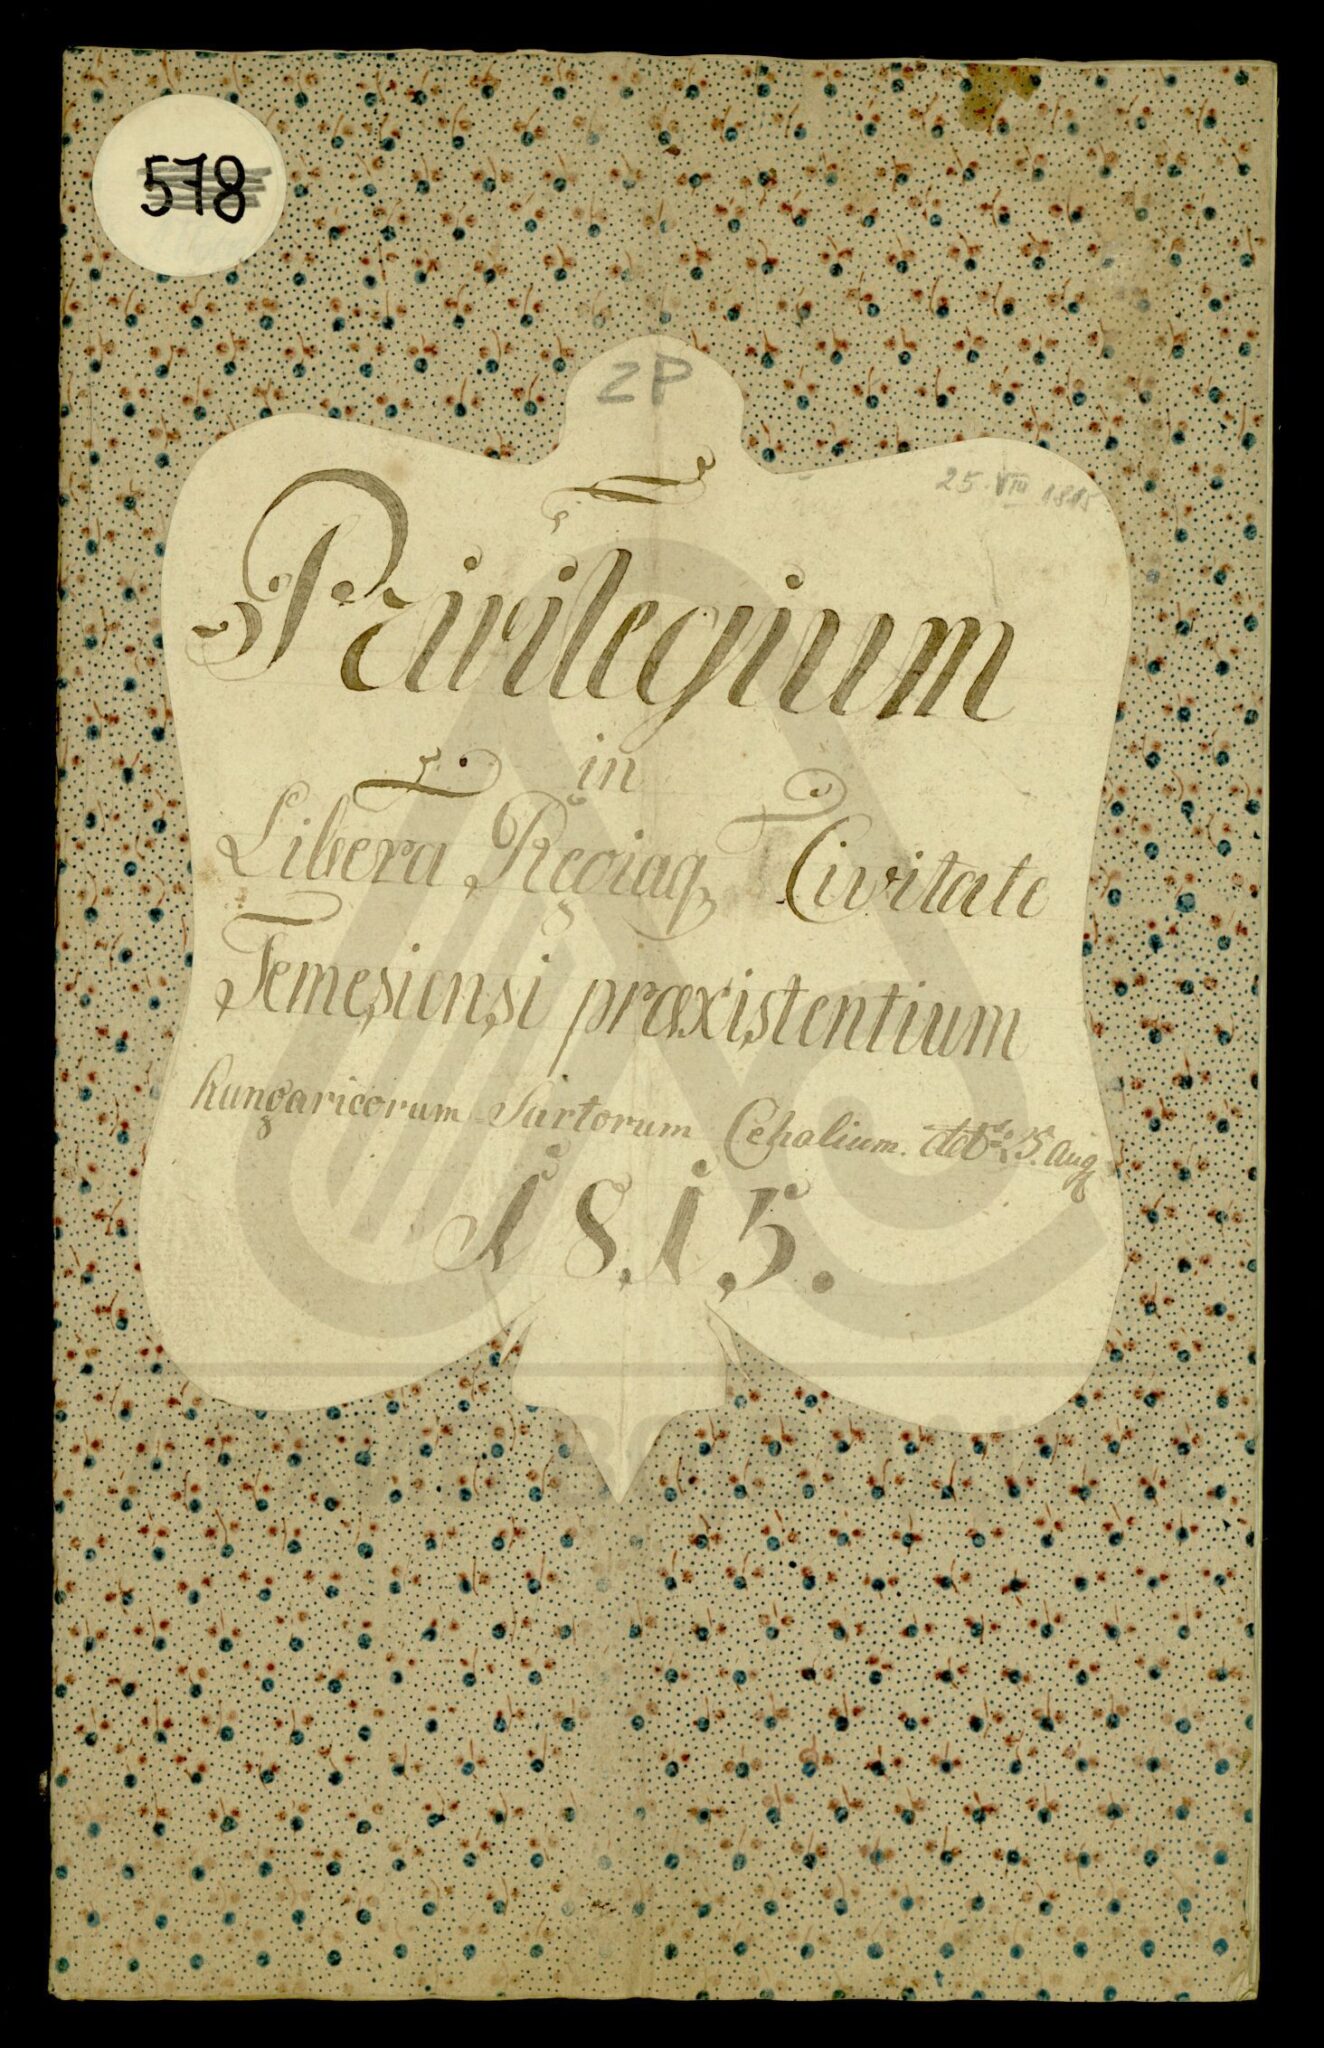 578
ZP
25. VIII 1815
Privilegium
in
Libera Regiaq Civitate
Temesiensi præexistentium
hungaricorum Sartorum Cehalium. ddto 25. Aug
1815.